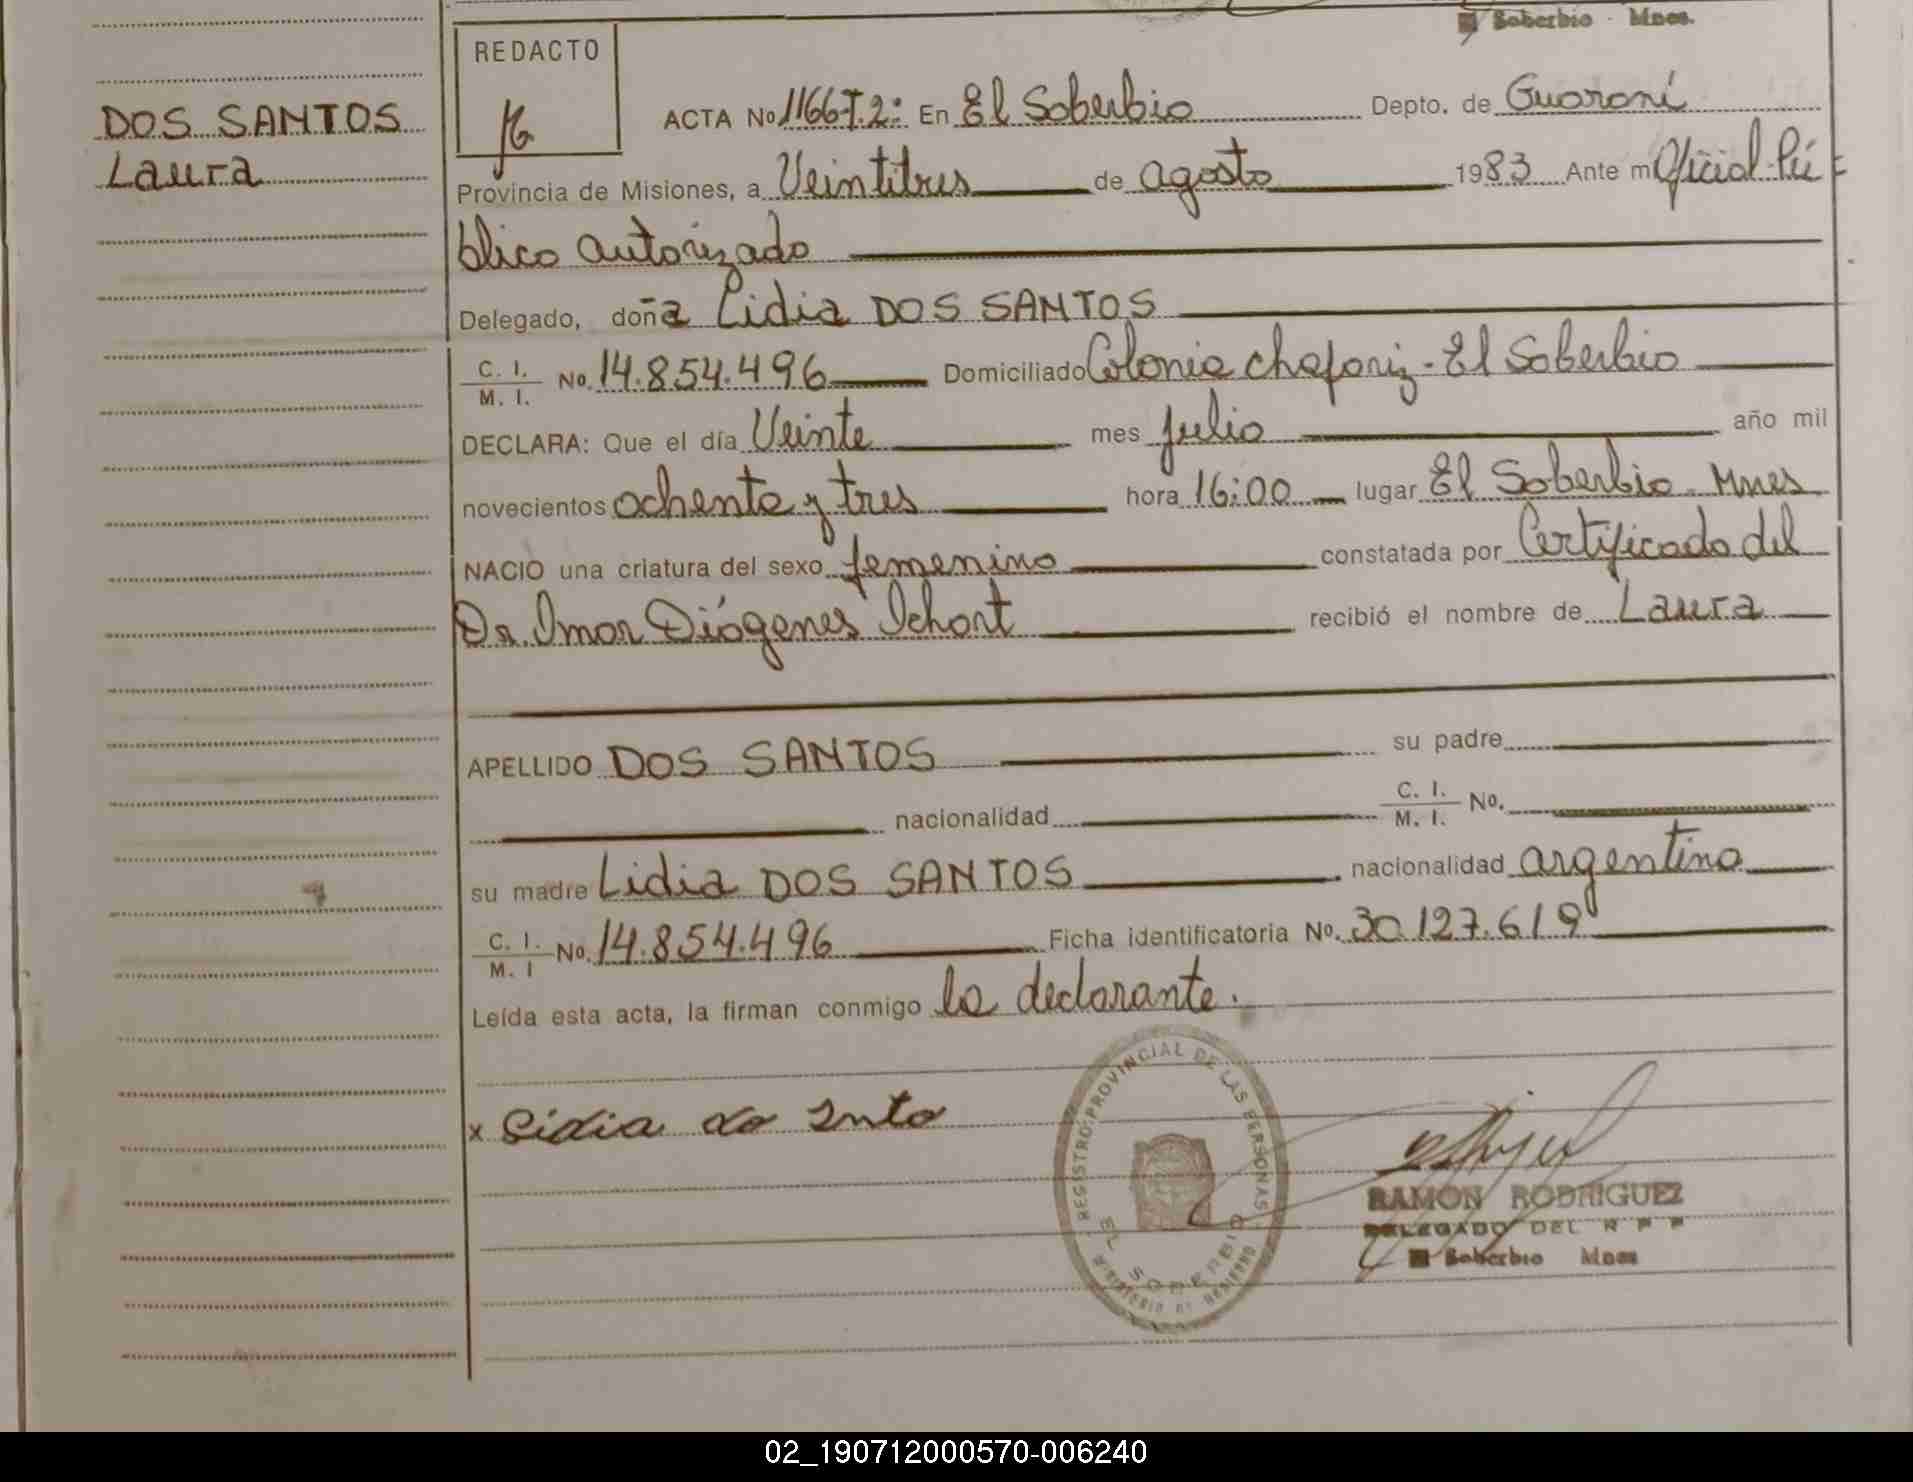 El Soberbio - Mnes.
REDACTO
DOS SANTOS
Laura
ACTA No 1166 T.2: En El Soberbio Depto. de Guaraní
Provincia de Misiones, a Veintitres de agosto 1983 Ante mí Oficial Pú
blico autorizado
Delegado, doña Lidia DOS SANTOS
C. I.
M. I. No. 14.854.496 Domiciliado Colonia Chafariz - El Soberbio
DECLARA: Que el día Veinte mes julio año mil
novecientos ochenta y tres hora 16:00 lugar El Soberbio - Mnes
NACIO una criatura del sexo femenino constatada por Certificado del
Dr. Omar Diógenes recibió el nombre de Laura
APELLIDO DOS SANTOS su padre
nacionalidad C. I.
M. I. No.
su madre Lidia DOS SANTOS nacionalidad argentina
C. I.
M. I No. 14.854.496 Ficha identificatoria No. 30.127.619
Leída esta acta, la firman conmigo la declarante.
x Lidia do
REGISTRO PROVINCIAL DE LAS PERSONAS
EL SOBERBIO
MINISTERIO DE GOBIERNO
RAMON RODRIGUEZ
DELEGADO DEL R P P
El Soberbio Mnes
02_190712000570-006240